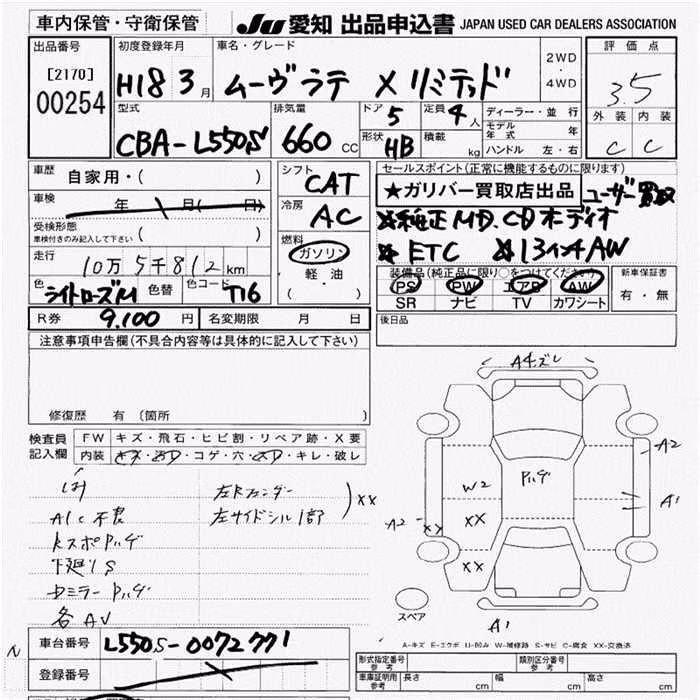 車内保管・守衛保管
JU 愛知 出品申込書 JAPAN USED CAR DEALERS ASSOCIATION
出品番号 初度登録年月 車名・グレード 2WD・4WD 評価点
[2170]
00254
H18 3月 ムーヴラテ Xリミテッド 3.5
型式 排気量 ドア 5 定員 4人 ディーラー・並行 外装 内装
CBA-L550S 660 CC 形状 HB 積載 kg モデル年式 年 C C
ハンドル 左・右
車歴 自家用・( )
シフト CAT
セールスポイント(正常に機能するものに限ります)
★ガリバー買取店出品 ユーザー買取
車検 年 月( 日)
冷房 AC
※純正MD.CDオーディオ
受検形態
車検付きのみ記入して下さい ( )
燃料 ガソリン・軽油 ( )
※ETC ※13インチAW
走行 10万5千812km
装備品(純正品に限り○をつけてください) 新車保証書
PS PW エアB AW 有・無
SR ナビ TV カワシート
色 ライトローズM 色替 色コード T16
R券 9,100円 名変期限 月 日
後日品
注意事項申告欄(不具合内容等は具体的に記入して下さい)
修復歴 有 (箇所
検査員記入欄 FW キズ・飛石・ヒビ割・リペア跡・X要
内装 キズ・コゲ・穴・キレ・破レ
A/C不良
左サイドシル1部
XX
各AV
A4キズ
A2
A1
W2
XX
A2
XX
XX
A1
スペア
A-キズ E-エクボ U-凹み W-補修跡 S-サビ C-腐食 XX-交換済
車台番号 L550S-0072771
登録番号
形式指定番号 参考 類別区分番号 参考
車庫証明用 参考 長さ cm 幅 cm 高さ cm